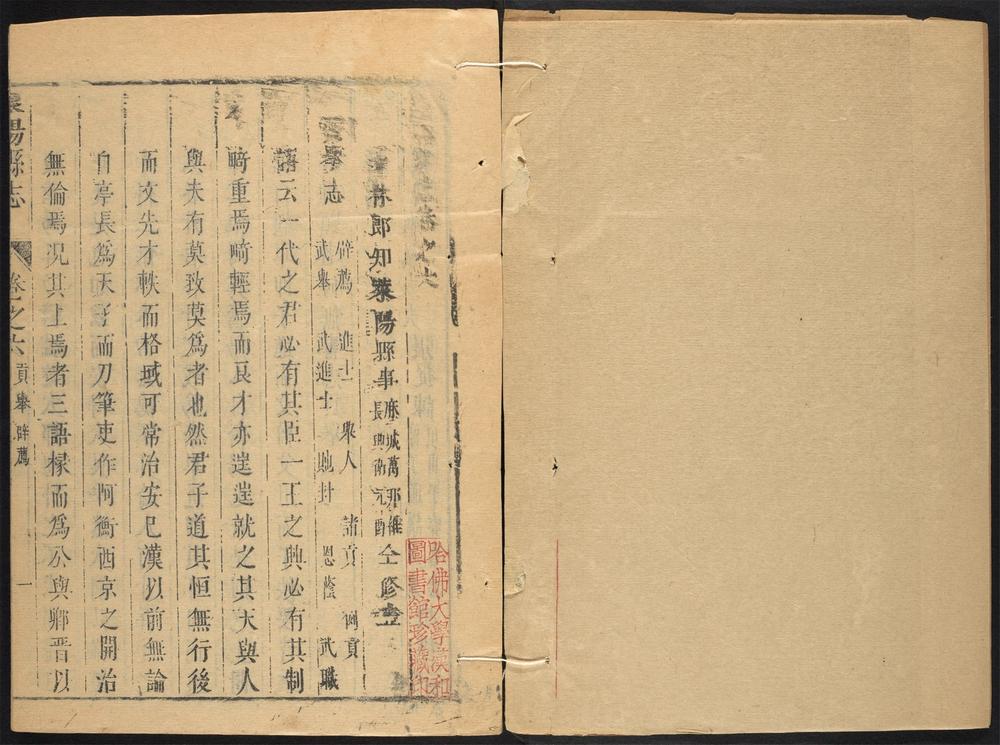 卷之六
林郎知萊陽縣事麻城萬邦維
長興衛元爵仝修
貢舉志
辟薦 進士 舉人 諸貢 例貢
武舉 武進士 貤封 恩蔭 武職
語云一代之君必有其臣一王之興必有其制
畸重焉畸輕焉而良才亦遑遑就之其天與人
與夫有莫致莫爲者也然君子道其恒無行後
而文先才軼而格域可常治安已漢以前無論
自亭長爲天子而刀筆吏作阿衡西京之開治
無倫焉况其上焉者三語椽而爲公與卿晋以
萊陽縣志 卷之六 貢舉 辟薦 一
哈佛大學漢和
圖書館珍藏印